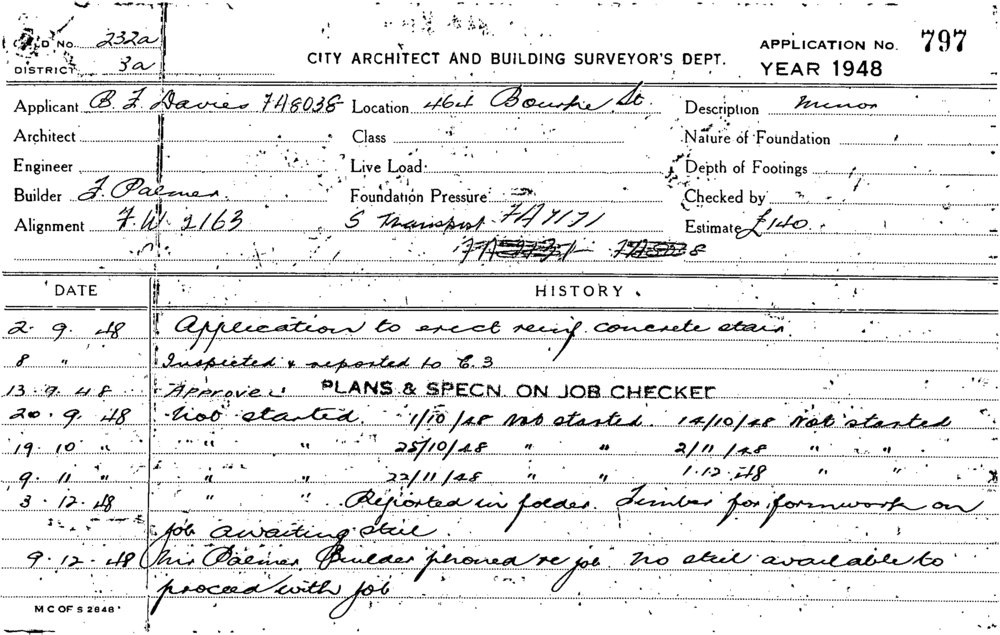 BUILD No. 232a
DISTRICT 3a
CITY ARCHITECT AND BUILDING SURVEYOR'S DEPT.
APPLICATION No. 797
YEAR 1948
Applicant B. F. Davies 748038 Location 464 Bourke St. Description minor
Architect Class Nature of Foundation
Engineer Live Load Depth of Footings
Builder F. Palmer Foundation Pressure Checked by
Alignment F.W. 2163 S Transport FA7171 Estimate £140
DATE HISTORY
2. 9. 48 Application to erect reinf. concrete stair
8 " Inspected & reported to C. S
13. 9. 48 Approved PLANS & SPECN. ON JOB CHECKED
20. 9. 48 Not started. 1/10/48 Not started. 14/10/48 Not started
19. 10 " " " 25/10/48 " " 2/11/48 " "
9. 11 " " " 22/11/48 " " 1.12.48 " "
3. 12. 48 " " Reported in folder. Timber for formwork on
job awaiting steel
9. 12. 48 Mr Palmer Builder phoned re job no steel available to
proceed with job
M C OF S 2848